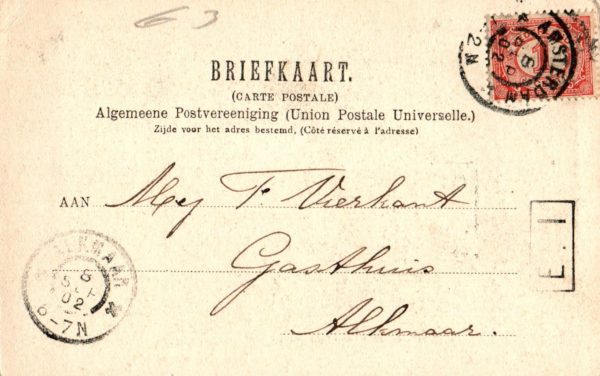 63
BRIEFKAART.
(CARTE POSTALE)
Algemeene Postvereeniging (Union Postale Universelle.)
Zijde voor het adres bestemd, (Côté réservé à l'adresse)
AMSTERDAM
8 SEP
02
2 N
AAN Mej F. Vierkant
Gasthuis
Alkmaar.
E. I
ALKMAAR
8
02
6-7N